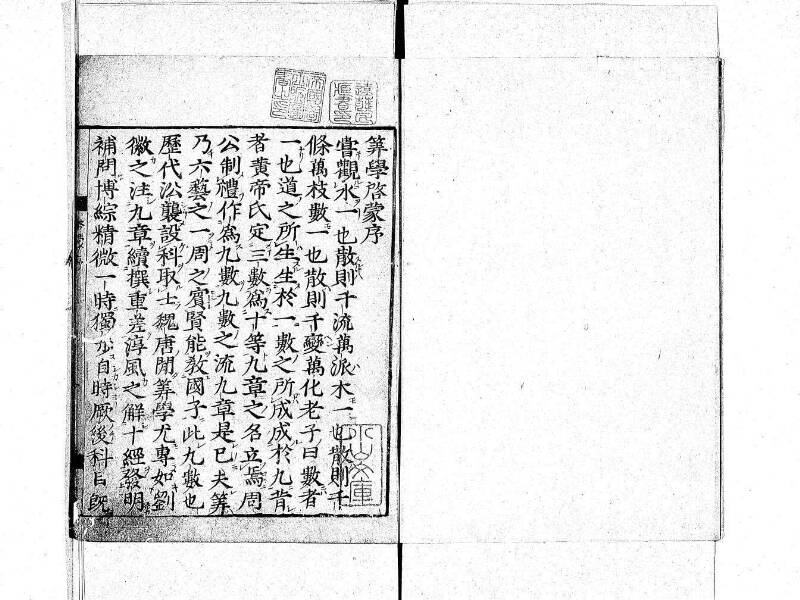 筭學啓蒙序
嘗觀水一也散則千流萬派木一也散則千
條萬枝數一也散則千變萬化老子曰數者
一也道之所生生於一數之所成成於九昔
者黄帝氏定三數爲十等九章之名立焉周
公制禮作爲九數九數之流九章是已夫筭
乃六藝之一周之賓賢能敎國子此九數也
歷代沿襲設科取士魏唐間筭學尤專如劉
徽之注九章續撰重差淳風之解十經發明
補問博綜精微一時獨 自時厥後科目旣